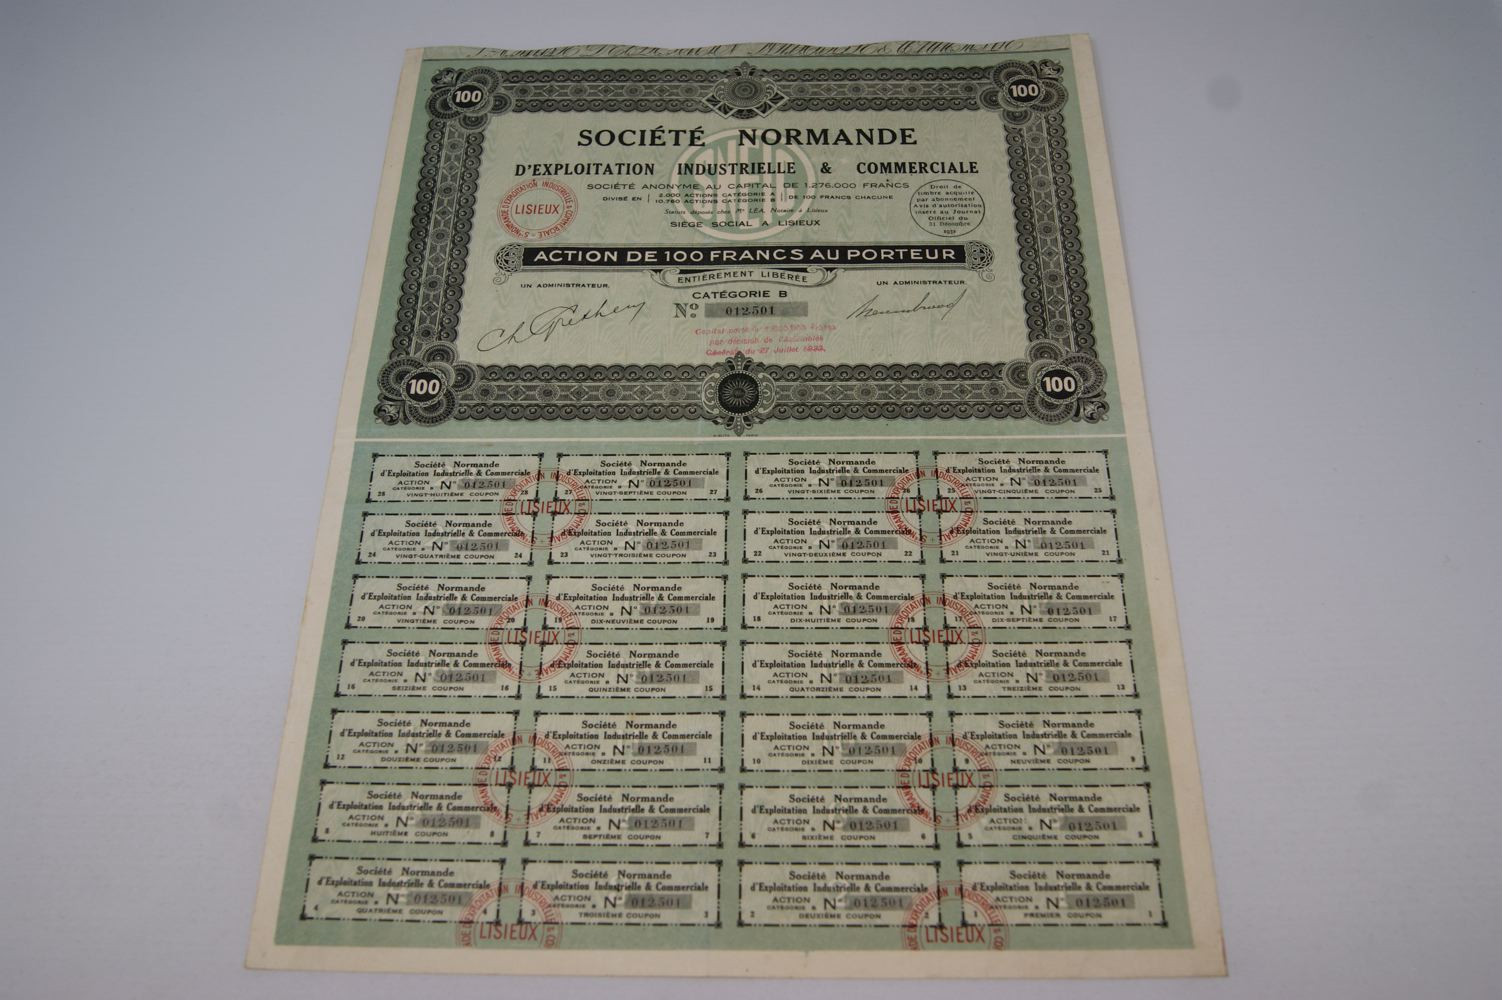 100
100
SOCIÉTÉ NORMANDE
D'EXPLOITATION INDUSTRIELLE & COMMERCIALE
SOCIÉTÉ ANONYME AU CAPITAL DE 1.276.000 FRANCS
DIVISÉ EN
2.000 ACTIONS CATÉGORIE A
10.760 ACTIONS CATÉGORIE B
DE 100 FRANCS CHACUNE
Statuts déposés chez Me LÉA Notaire à Lisieux
SIÈGE SOCIAL A LISIEUX
SNEIC
Sté NORMANDE D'EXPLOITATION INDUSTRIELLE & COMMERCIALE
LISIEUX
Droit de
timbre acquitté
par abonnement
Avis d'autorisation
inséré au Journal
Officiel du
31 Décembre
1931
ACTION DE 100 FRANCS AU PORTEUR
ENTIÈREMENT LIBÉRÉE
UN ADMINISTRATEUR.
UN ADMINISTRATEUR.
CATÉGORIE B
No. 012501
Capital porté à Francs
par décision de l'Assemblée
Générale du 27 Juillet 1933.
100
100
Société Normande
d'Exploitation Industrielle & Commerciale
ACTION
CATÉGORIE B No 012501
28 VINGT-HUITIÈME COUPON 28
Société Normande
d'Exploitation Industrielle & Commerciale
ACTION
CATÉGORIE B No 012501
27 VINGT-SEPTIÈME COUPON 27
Société Normande
d'Exploitation Industrielle & Commerciale
ACTION
CATÉGORIE B No 012501
26 VINGT-SIXIÈME COUPON 26
Société Normande
d'Exploitation Industrielle & Commerciale
ACTION
CATÉGORIE B No 012501
25 VINGT-CINQUIÈME COUPON 25
LISIEUX
LISIEUX
Société Normande
d'Exploitation Industrielle & Commerciale
ACTION
CATÉGORIE B No 012501
24 VINGT-QUATRIÈME COUPON 24
Société Normande
d'Exploitation Industrielle & Commerciale
ACTION
CATÉGORIE B No 012501
23 VINGT-TROISIÈME COUPON 23
Société Normande
d'Exploitation Industrielle & Commerciale
ACTION
CATÉGORIE B No 012501
22 VINGT-DEUXIÈME COUPON 22
Société Normande
d'Exploitation Industrielle & Commerciale
ACTION
CATÉGORIE B No 012501
21 VINGT-UNIÈME COUPON 21
Société Normande
d'Exploitation Industrielle & Commerciale
ACTION
CATÉGORIE B No 012501
20 VINGTIÈME COUPON 20
Société Normande
d'Exploitation Industrielle & Commerciale
ACTION
CATÉGORIE B No 012501
19 DIX-NEUVIÈME COUPON 19
Société Normande
d'Exploitation Industrielle & Commerciale
ACTION
CATÉGORIE B No 012501
18 DIX-HUITIÈME COUPON 18
Société Normande
d'Exploitation Industrielle & Commerciale
ACTION
CATÉGORIE B No 012501
17 DIX-SEPTIÈME COUPON 17
LISIEUX
LISIEUX
Société Normande
d'Exploitation Industrielle & Commerciale
ACTION
CATÉGORIE B No 012501
16 SEIZIÈME COUPON 16
Société Normande
d'Exploitation Industrielle & Commerciale
ACTION
CATÉGORIE B No 012501
15 QUINZIÈME COUPON 15
Société Normande
d'Exploitation Industrielle & Commerciale
ACTION
CATÉGORIE B No 012501
14 QUATORZIÈME COUPON 14
Société Normande
d'Exploitation Industrielle & Commerciale
ACTION
CATÉGORIE B No 012501
13 TREIZIÈME COUPON 13
Société Normande
d'Exploitation Industrielle & Commerciale
ACTION
CATÉGORIE B No 012501
12 DOUZIÈME COUPON 12
Société Normande
d'Exploitation Industrielle & Commerciale
ACTION
CATÉGORIE B No 012501
11 ONZIÈME COUPON 11
Société Normande
d'Exploitation Industrielle & Commerciale
ACTION
CATÉGORIE B No 012501
10 DIXIÈME COUPON 10
Société Normande
d'Exploitation Industrielle & Commerciale
ACTION
CATÉGORIE B No 012501
9 NEUVIÈME COUPON 9
LISIEUX
LISIEUX
Société Normande
d'Exploitation Industrielle & Commerciale
ACTION
CATÉGORIE B No 012501
8 HUITIÈME COUPON 8
Société Normande
d'Exploitation Industrielle & Commerciale
ACTION
CATÉGORIE B No 012501
7 SEPTIÈME COUPON 7
Société Normande
d'Exploitation Industrielle & Commerciale
ACTION
CATÉGORIE B No 012501
6 SIXIÈME COUPON 6
Société Normande
d'Exploitation Industrielle & Commerciale
ACTION
CATÉGORIE B No 012501
5 CINQUIÈME COUPON 5
Société Normande
d'Exploitation Industrielle & Commerciale
ACTION
CATÉGORIE B No 012501
4 QUATRIÈME COUPON 4
Société Normande
d'Exploitation Industrielle & Commerciale
ACTION
CATÉGORIE B No 012501
3 TROISIÈME COUPON 3
Société Normande
d'Exploitation Industrielle & Commerciale
ACTION
CATÉGORIE B No 012501
2 DEUXIÈME COUPON 2
Société Normande
d'Exploitation Industrielle & Commerciale
ACTION
CATÉGORIE B No 012501
1 PREMIER COUPON 1
LISIEUX
LISIEUX